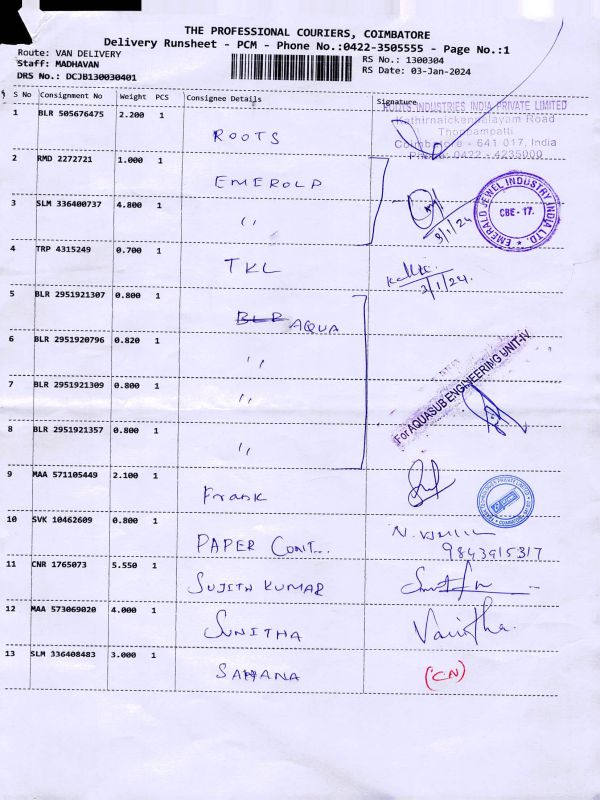 THE PROFESSIONAL COURIERS, COIMBATORE
Delivery Runsheet - PCM - Phone No.:0422-3505555 - Page No.:1
Route: VAN DELIVERY
Staff: MADHAVAN
DRS No.: DCJB130030401
RS No.: 1300304
RS Date: 03-Jan-2024
S No Consignment No Weight PCS Consignee Details Signature
ROOTS INDUSTRIES INDIA PRIVATE LIMITED
Kathirnaickenpalayam Road
Thoppampatti
Coimbatore - 641 017, India
Phone: 0422 - 4235000
1 BLR 505676475 2.200 1 ROOTS
2 RMD 2272721 1.000 1 EMEROLD
3 SLM 336400737 4.800 1 ,, 3/1/24
EMERALD JEWEL INDUSTRY INDIA LTD.
CBE - 17.
4 TRP 4315249 0.700 1 TKL 3/1/24.
5 BLR 2951921307 0.800 1 BLR AQUA
6 BLR 2951920796 0.820 1 ,,
7 BLR 2951921309 0.800 1 ,,
For AQUASUB ENGINEERING UNIT-IV
8 BLR 2951921357 0.800 1 ,,
9 MAA 571105449 2.100 1 Frank
10 SVK 10462609 0.800 1 PAPER CONT...
9843915317
11 CNR 1765073 5.550 1 SUJITH KUMAR
12 MAA 573069020 4.000 1 SUNITHA Vanitha.
13 SLM 336408483 3.000 1 SAHANA (CN)